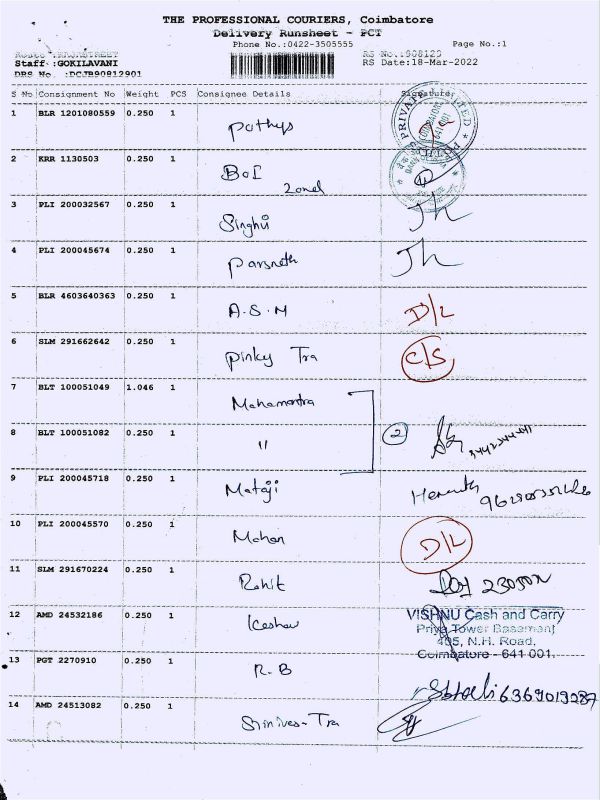 THE PROFESSIONAL COURIERS, Coimbatore
Delivery Runsheet - PCT
Phone No.:0422-3505555 Page No.:1
Route :RAJNSTREET RS No.:908129
Staff :GOKILAVANI RS Date:18-Mar-2022
DRS No. :DCJB90812901
S No Consignment No Weight PCS Consignee Details Signature
1 BLR 1201080559 0.250 1 Pothys
PRIVATE LIMITED
641 001
2 KRR 1130503 0.250 1 BOI
Zonal
3 PLI 200032567 0.250 1 Singhvi
4 PLI 200045674 0.250 1 Parsnath
5 BLR 4603640363 0.250 1 A.S.M D/L
6 SLM 291662642 0.250 1 Pinky Tra C/S
7 BLT 100051049 1.046 1 Mahamantra
8 BLT 100051082 0.250 1 " 2
9 PLI 200045718 0.250 1 Mataji Hemanth
10 PLI 200045570 0.250 1 Mohan D/L
11 SLM 291670224 0.250 1 Rohit
12 AMD 24532186 0.250 1 Keshav
VISHNU Cash and Carry
Priya Tower Basement
405, N.H. Road,
Coimbatore - 641 001.
13 PGT 2270910 0.250 1 R.B 6369019287
14 AMD 24513082 0.250 1 Srinivas Tra